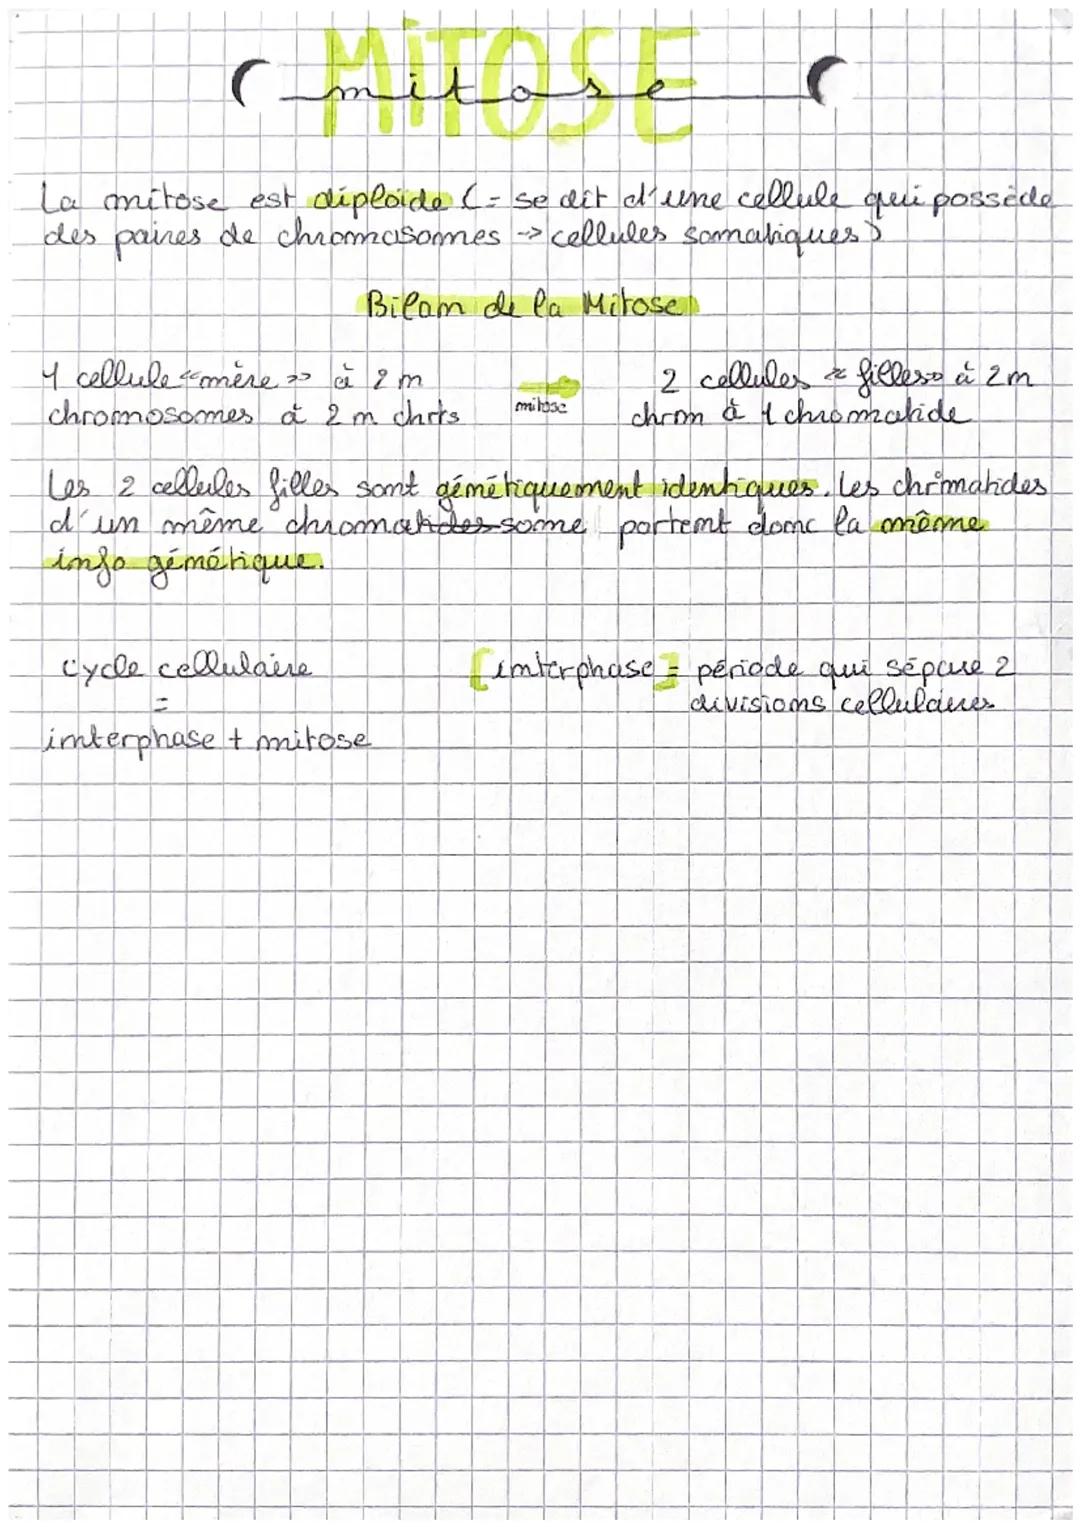 MITOSE
mitose
La mitose est diploïde (= se dit d'une cellule qui possède
des paires de chromosomes -> cellules somatiques)
Bilan de la Mitose
1 cellule « mère » à 2n
chromosomes à 2 n chrts
mitose
2 cellules « filles » à 2n
chrom à 1 chromatide
Les 2 cellules filles sont génétiquement identiques. Les chrmatides
d'un même chromatides some portent donc la même
info génétique.
cycle cellulaire
=
interphase + mitose
[interphase] = période qui sépare 2
divisions cellulaires